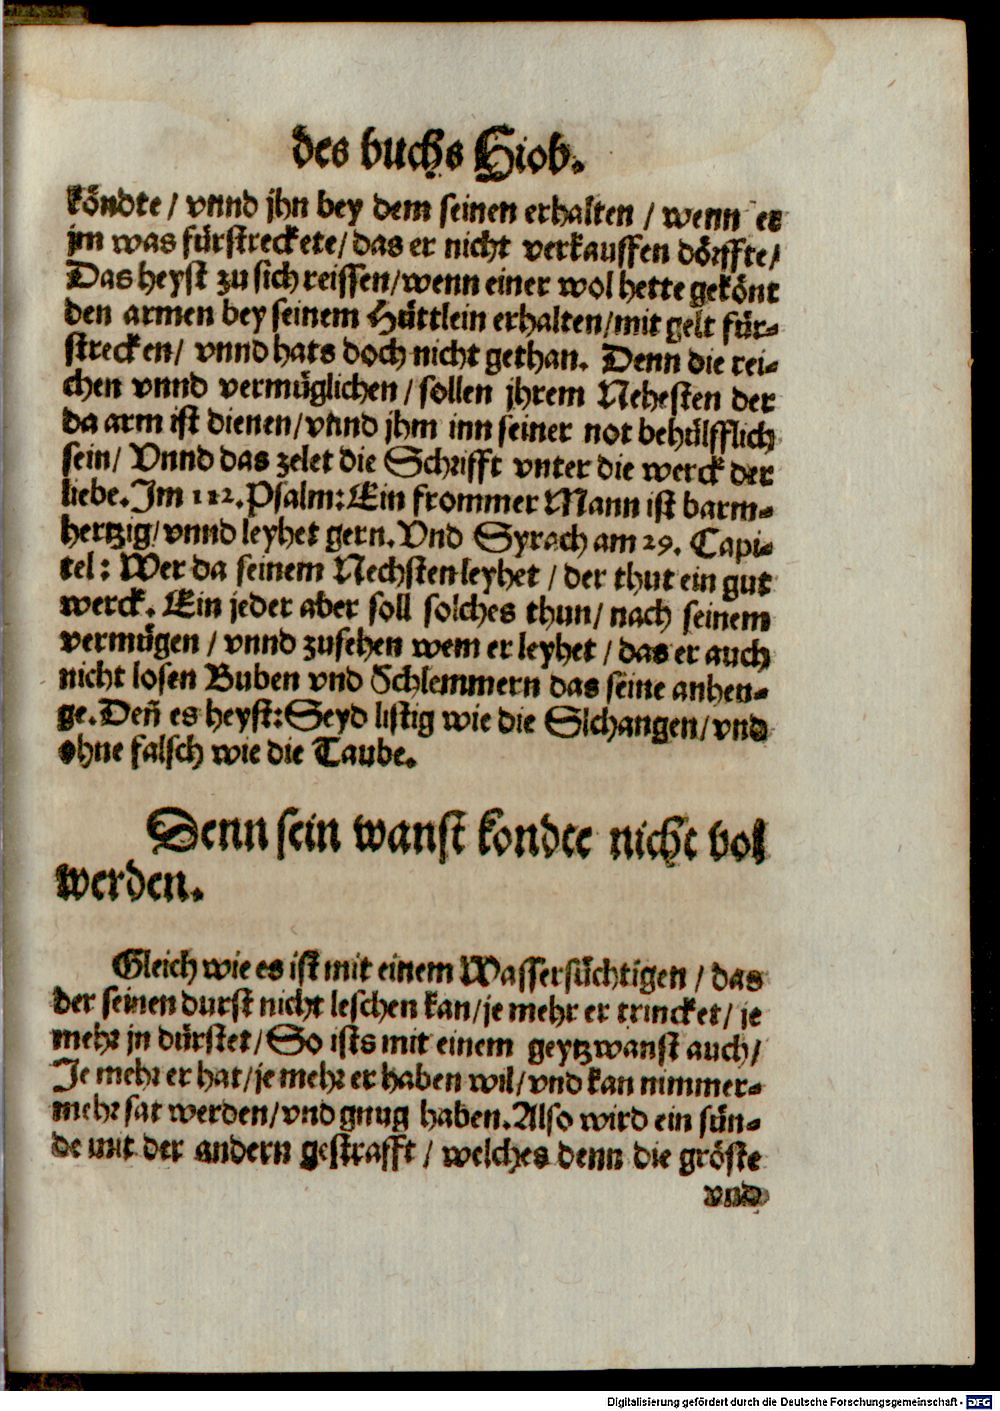 des buchs Hiob.
köndte / vnnd jhn bey dem seinen erhalten / wenn er
jm was fürstreckete/ das er nicht verkauffen dörffte/
Das heyst zu sich reissen/wenn einer wol hette gekönt
den armen bey seinem Hüttlein erhalten/mit gelt für-
strecken/ vnnd hats doch nicht gethan. Denn die rei-
chen vnnd vermüglichen / sollen jhrem Nehesten der
da arm ist dienen/vnnd jhm inn seiner not behülfflich
sein/ Vnnd das zelet die Schrifft vnter die werck der
liebe. Im 112. Psalm: Ein frommer Mann ist barm-
hertzig/vnnd leyhet gern. Vnd Syrach am 29. Capi-
tel: Wer da seinem Nechsten leyhet / der thut ein gut
werck. Ein jeder aber soll solches thun/ nach seinem
vermügen / vnnd zusehen wem er leyhet / das er auch
nicht losen Buben vnd Schlemmern das seine anhen-
ge. Deñ es heyst: Seyd listig wie die Slchangen/vnd
ohne falsch wie die Taube.
Denn sein wanst kondte nicht vol
werden.
Gleich wie es ist mit einem Wassersüchtigen / das
der seinen durst nicht leschen kan/je mehr er trincket/ je
mehr jn dürstet/ So ists mit einem geytzwanst auch/
Je mehr er hat/je mehr er haben wil/vnd kan nimmer-
mehr sat werden/vnd gnug haben. Also wird ein sün-
de mit der andern gestrafft / welches denn die gröste
vnd
Digitalisierung gefördert durch die Deutsche Forschungsgemeinschaft - DFG